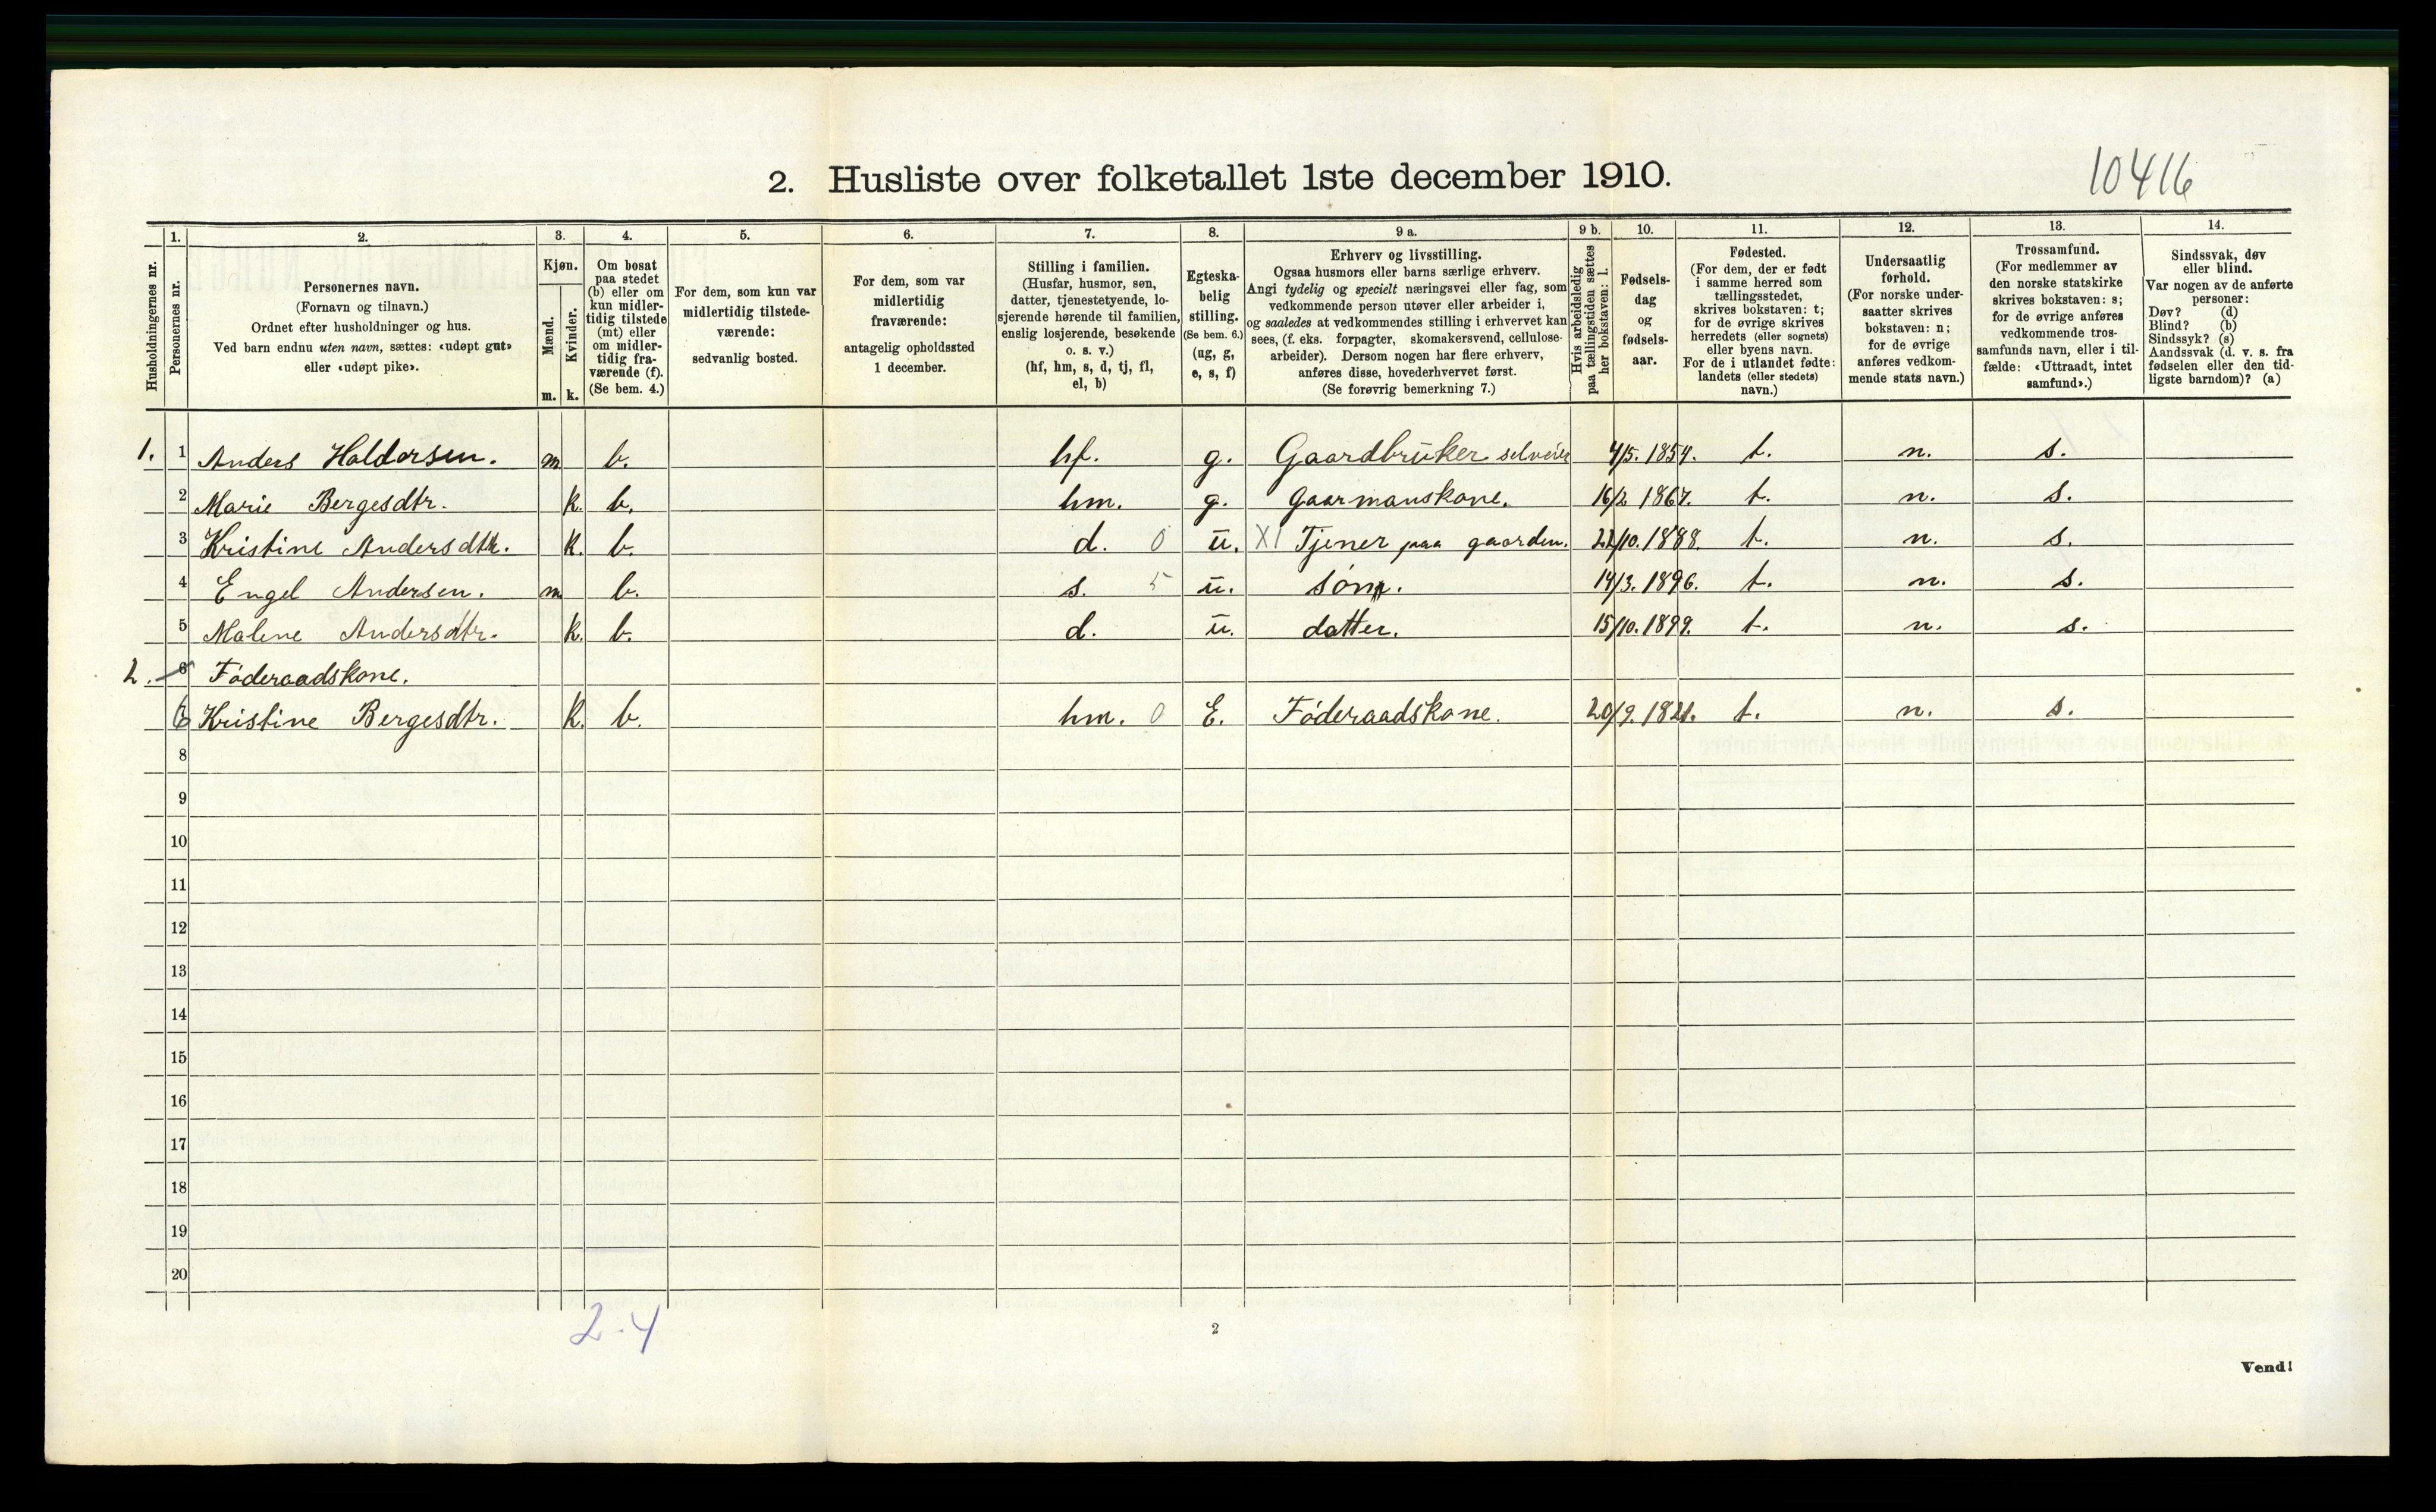 10416
2. Husliste over folketallet 1ste december 1910.
Husholdningernes nr.
1.
Personernes nr.
2.
Personernes navn.
(Fornavn og tilnavn.)
Ordnet efter husholdninger og hus.
Ved barn endnu uten navn, sættes: «udøpt gut»
eller «udøpt pike».
3.
Kjøn.
Mænd.
Kvinder.
m. k.
4.
Om bosat
paa stedet
(b) eller om
kun midler-
tidig tilstede
(mt) eller
om midler-
tidig fra-
værende (f).
(Se bem. 4.)
5.
For dem, som kun var
midlertidig tilstede-
værende:
sedvanlig bosted.
6.
For dem, som var
midlertidig
fraværende:
antagelig opholdssted
1 december.
7.
Stilling i familien.
(Husfar, husmor, søn,
datter, tjenestetyende, lo-
sjerende hørende til familien,
enslig losjerende, besøkende
o. s. v.)
(hf, hm, s, d, tj, fl,
el, b)
8.
Egteska-
belig
stilling.
(Se bem. 6.)
(ug, g,
e, s, f)
9 a.
Erhverv og livsstilling.
Ogsaa husmors eller barns særlige erhverv.
Angi tydelig og specielt næringsvei eller fag, som
vedkommende person utøver eller arbeider i,
og saaledes at vedkommendes stilling i erhvervet kan
sees, (f. eks. forpagter, skomakersvend, cellulose-
arbeider). Dersom nogen har flere erhverv,
anføres disse, hovederhvervet først.
(Se forøvrig bemerkning 7.)
9 b.
Hvis arbeidsledig
paa tællingstiden sættes
her bokstaven: l.
10.
Fødsels-
dag
og
fødsels-
aar.
11.
Fødested.
(For dem, der er født
i samme herred som
tællingsstedet,
skrives bokstaven: t;
for de øvrige skrives
herredets (eller sognets)
eller byens navn.
For de i utlandet fødte:
landets (eller stedets)
navn.)
12.
Undersaatlig
forhold.
(For norske under-
saatter skrives
bokstaven: n;
for de øvrige
anføres vedkom-
mende stats navn.)
13.
Trossamfund.
(For medlemmer av
den norske statskirke
skrives bokstaven: s;
for de øvrige anføres
vedkommende tros-
samfunds navn, eller i til-
fælde: «Uttraadt, intet
samfund».)
14.
Sindssvak, døv
eller blind.
Var nogen av de anførte
personer:
Døv? (d)
Blind? (b)
Sindssyk? (s)
Aandssvak (d. v. s. fra
fødselen eller den tid-
ligste barndom)? (a)
1. 1 Anders Haldorsen. m b. hf. g. Gaardbruker selveier 4/5. 1854. t. n. s.
2 Marie Bergesdtr. k. b. hm. g. Gaarmanskone. 16/2 1867. t. n. s.
3 Kristine Andersdtr. k. b. d. 0 u. X1 Tjener paa gaarden. 22/10. 1888. t. n. s.
4 Engel Andersen. m b. s. 5 u. søn. 14/3. 1896. t. n. s.
5 Malene Andersdtr. k. b. d. u. datter. 15/10. 1899. t. n. s.
2. 6 Føderaadskone.
6 Kristine Bergesdtr. k. b. hm. 0 E. Føderaadskone. 20/9. 1821. t. n. s.
8
9
10
11
12
13
14
15
16
17
18
19
20
2-4
2
Vend!